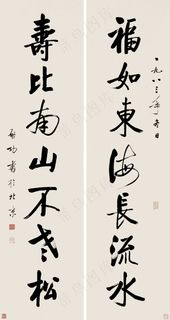 福如東海長流水
一九八三年春日
壽比南山不老松
啟功書於北京